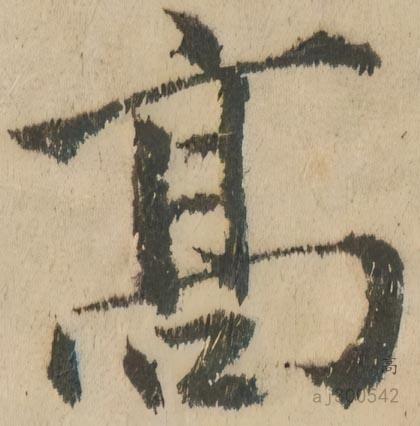 髙
高
aj300542